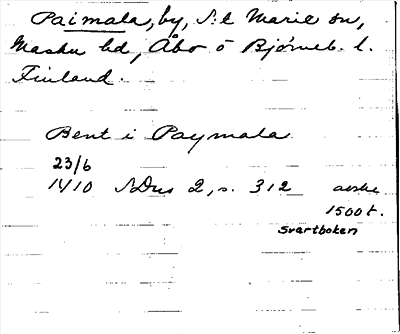 Paimala, by, S:t Marie sn,
Masku hd, Åbo o Bjørneb. l.
Finland.
Bent i Paymala
23/6
1410 SDns 2, s. 312 avskr
1500 t.
Svartboken